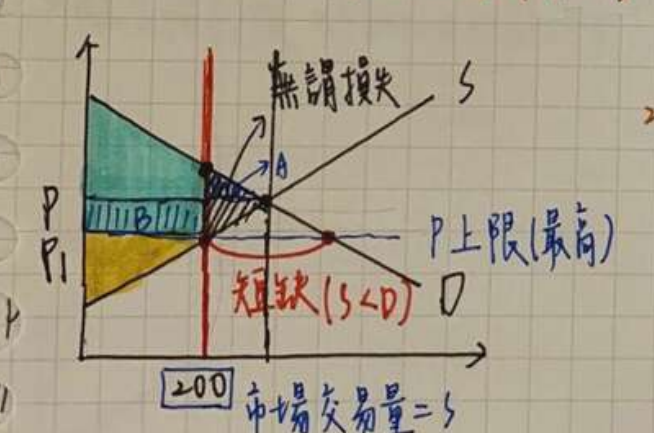 無謂損失
S
A
P
B
P上限(最高)
P1
短缺(S<D)
D
200
市場交易量=S